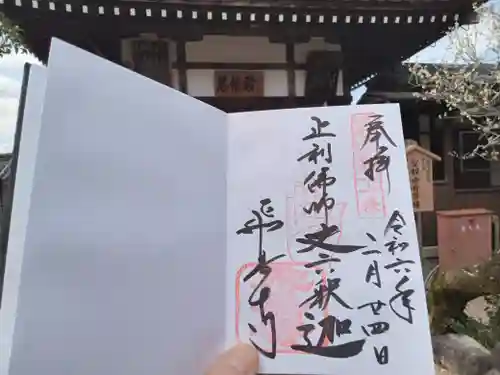 奉拝
令和六年
二月廿四日
止利佛師
丈六釈迦
飛鳥寺